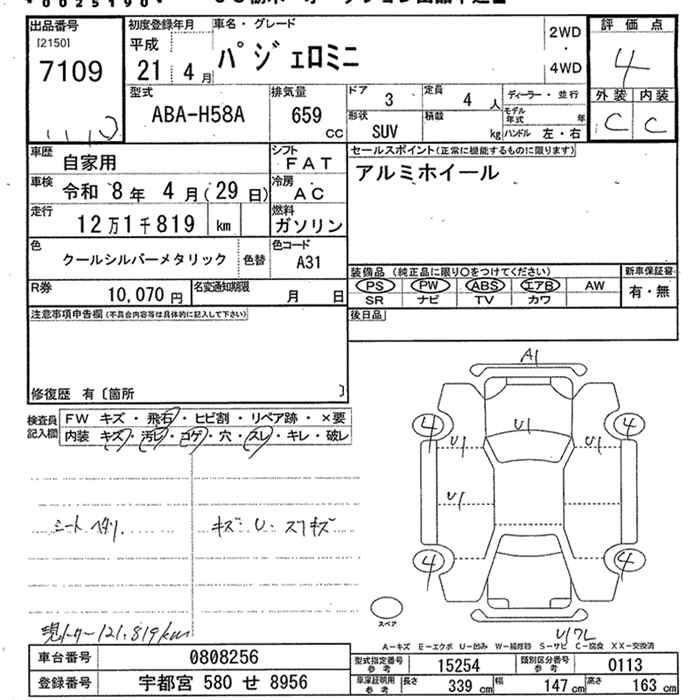 出品番号
[2150]
7109
初度登録年月
平成
21 4 月
車名・グレード
パジェロミニ
2WD
・
4WD
評価点
4
外装 内装
C C
型式
ABA-H58A
排気量
659
CC
ドア
3
定員
4 人
ディーラー・並行
形状
SUV
積載
kg
モデル年式
年
ハンドル 左・右
車歴
自家用
シフト
FAT
車検
令和 8 年 4 月(29 日)
冷房
AC
走行
12万1千819 km
燃料
ガソリン
色
クールシルバーメタリック
色替
色コード
A31
R券
10,070 円
名変通知期限
月 日
セールスポイント(正常に機能するものに限ります)
アルミホイール
装備品 (純正品に限り○をつけてください)
PS PW ABS エアB AW
SR ナビ TV カワ
新車保証書
有・無
後日品
注意事項申告欄(不具合内容等は具体的に記入して下さい)
修復歴 有〔箇所 〕
検査員記入欄
FW キズ・飛石・ヒビ割・リペア跡・×要
内装 キズ・汚レ・コゲ・穴・スレ・キレ・破レ
シート ヘタリ
キズ・U・スリキズ
現メーター121,819km
A1
4 4
U1 U1 U1
U1
4 4
スペア
U17L
A-キズ E-エクボ U-凹み W-補修跡 S-サビ C-腐食 XX-交換済
車台番号 0808256
登録番号 宇都宮 580 せ 8956
型式指定番号参考 15254 類別区分番号参考 0113
車庫証明用参考 長さ 339 cm 幅 147 cm 高さ 163 cm